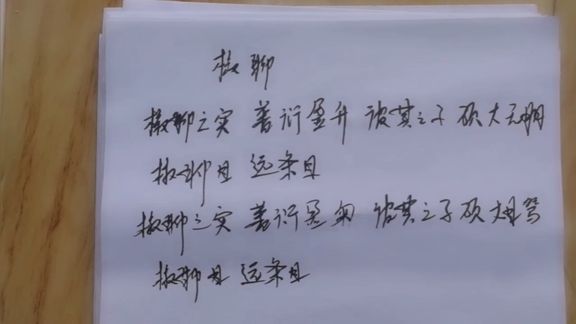 椒聊
椒聊之实 蕃衍盈升 彼其之子 硕大无朋
椒聊且 远条且
椒聊之实 蕃衍盈匊 彼其之子 硕大且笃
椒聊且 远条且